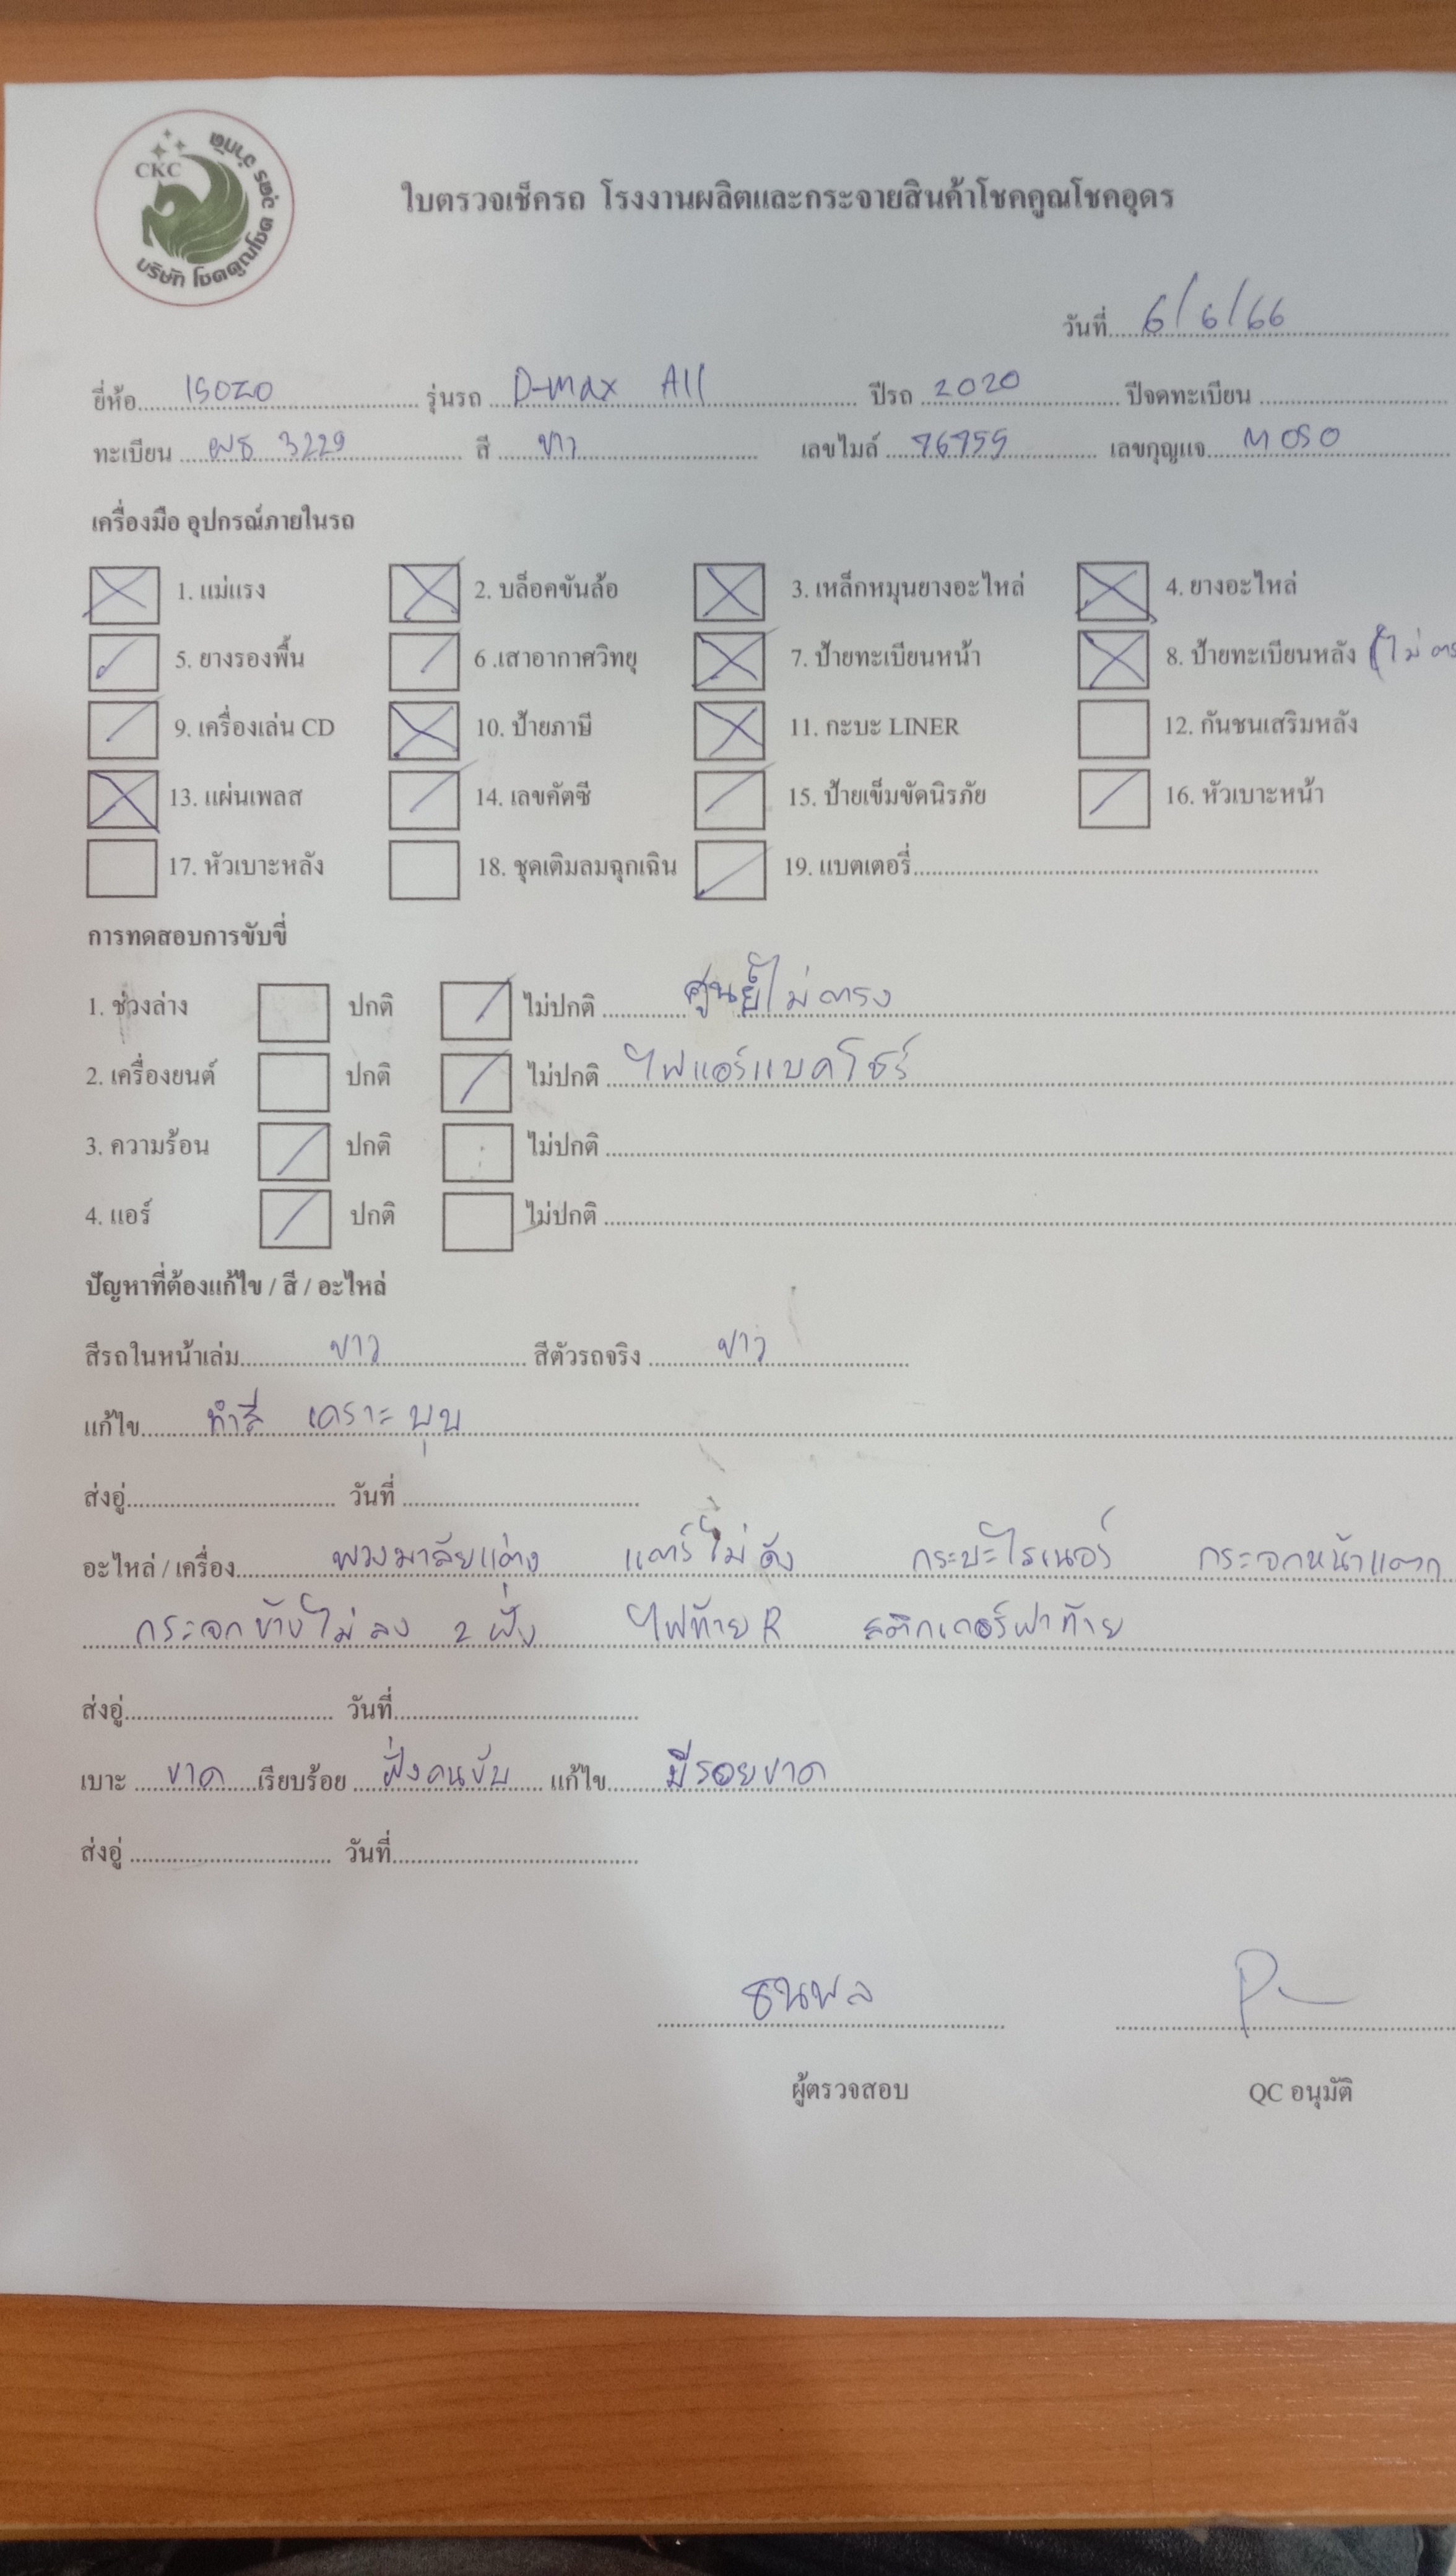 CKC
บริษัท โชคคูณโชค อุดร จำกัด
ใบตรวจเช็ครถ โรงงานผลิตและกระจายสินค้าโชคคูณโชคอุดร
วันที่ 6/6/66
ยี่ห้อ ISUZU รุ่นรถ D-max All ปีรถ 2020 ปีจดทะเบียน
ทะเบียน ผธ 3229 สี ขาว เลขไมล์ 76759 เลขกุญแจ M050
เครื่องมือ อุปกรณ์ภายในรถ
1. แม่แรง 2. บล็อคขันล้อ 3. เหล็กหมุนยางอะไหล่ 4. ยางอะไหล่
5. ยางรองพื้น 6 .เสาอากาศวิทยุ 7. ป้ายทะเบียนหน้า 8. ป้ายทะเบียนหลัง (ไม่
9. เครื่องเล่น CD 10. ป้ายภาษี 11. กะบะ LINER 12. กันชนเสริมหลัง
13. แผ่นเพลส 14. เลขคัตซี 15. ป้ายเข็มขัดนิรภัย 16. หัวเบาะหน้า
17. หัวเบาะหลัง 18. ชุดเติมลมฉุกเฉิน 19. แบตเตอรี่
การทดสอบการขับขี่
1. ช่วงล่าง ปกติ ไม่ปกติ ศูนย์ไม่ตรง
2. เครื่องยนต์ ปกติ ไม่ปกติ ไฟแอร์แบคโชร์
3. ความร้อน ปกติ ไม่ปกติ
4. แอร์ ปกติ ไม่ปกติ
ปัญหาที่ต้องแก้ไข / สี / อะไหล่
สีรถในหน้าเล่ม ขาว สีตัวรถจริง ขาว
แก้ไข ทำสี เคราะบุบ
ส่งอู่ วันที่
อะไหล่ / เครื่อง พวงมาลัยแต่ง แตร์ไม่ดัง กระบะไรเนอร์ กระจกหน้าแตก
กระจกข้างไม่ลง 2 ฝั่ง ไฟท้าย R สติกเกอร์ฝาท้าย
ส่งอู่ วันที่
เบาะ ขาด เรียบร้อย ฝั่งคนขับ แก้ไข มีรอยขาด
ส่งอู่ วันที่
ธนพล
ผู้ตรวจสอบ QC อนุมัติ